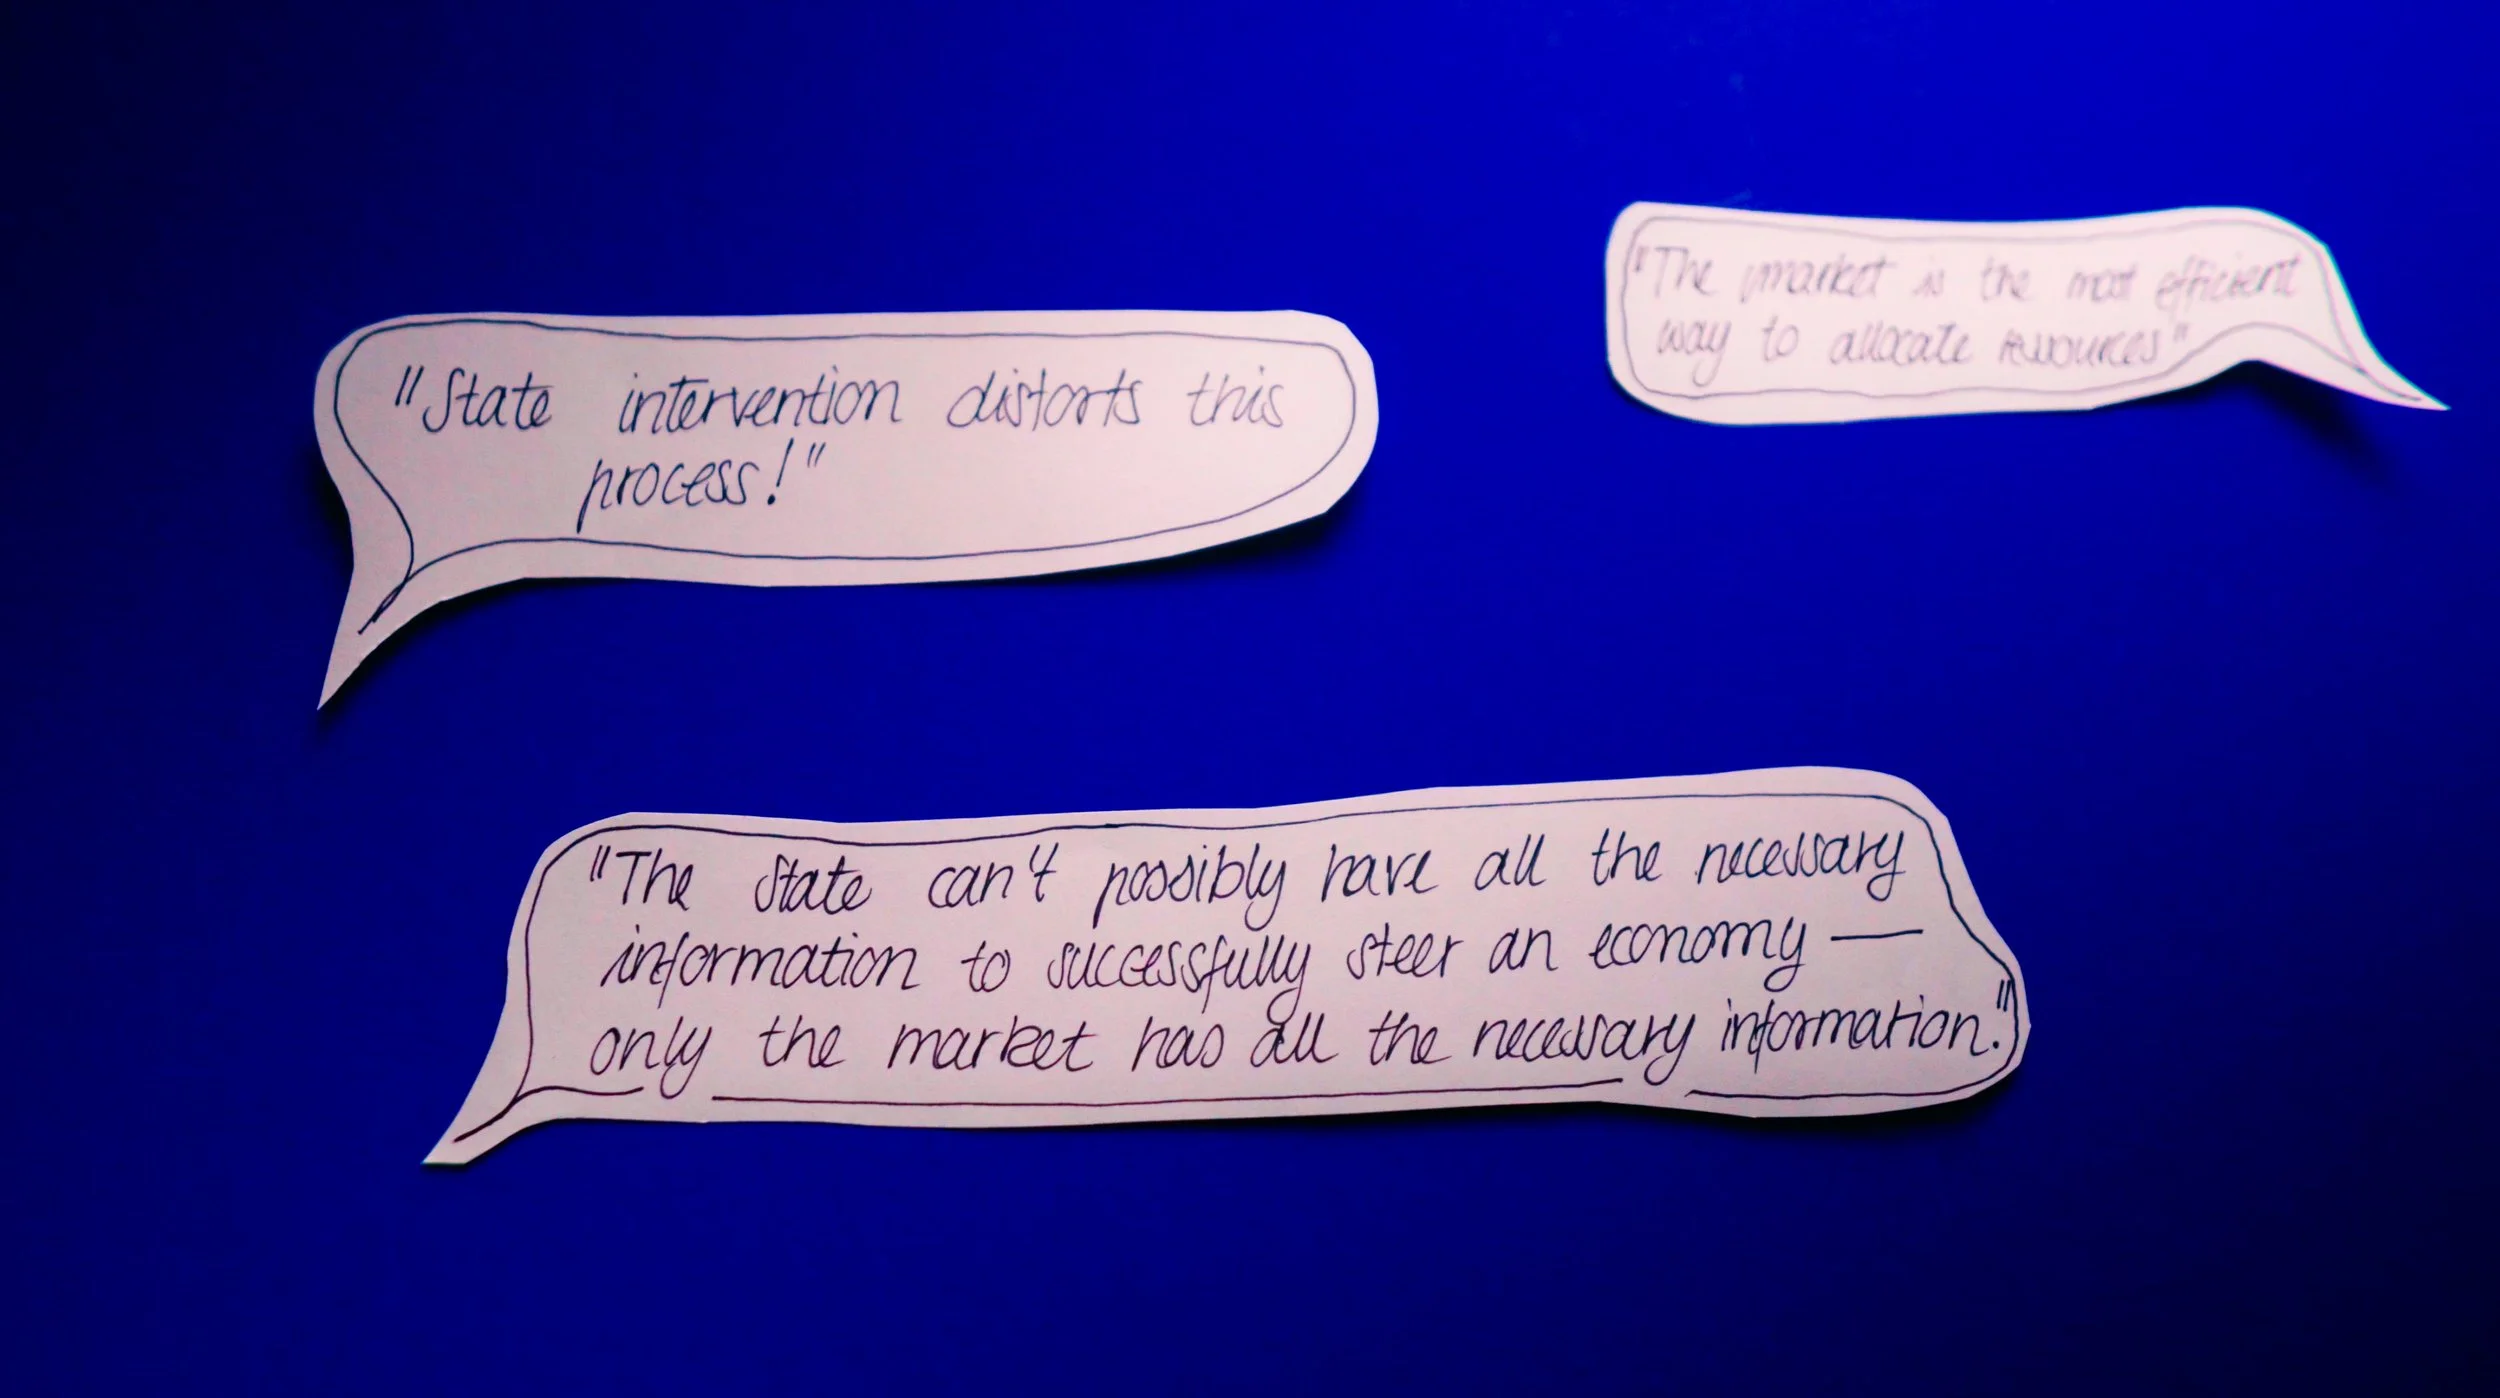 "The market is the most efficient
way to allocate resources"
"State intervention distorts this
process!"
"The State can't possibly have all the necessary
information to successfully steer an economy —
only the market has all the necessary information."